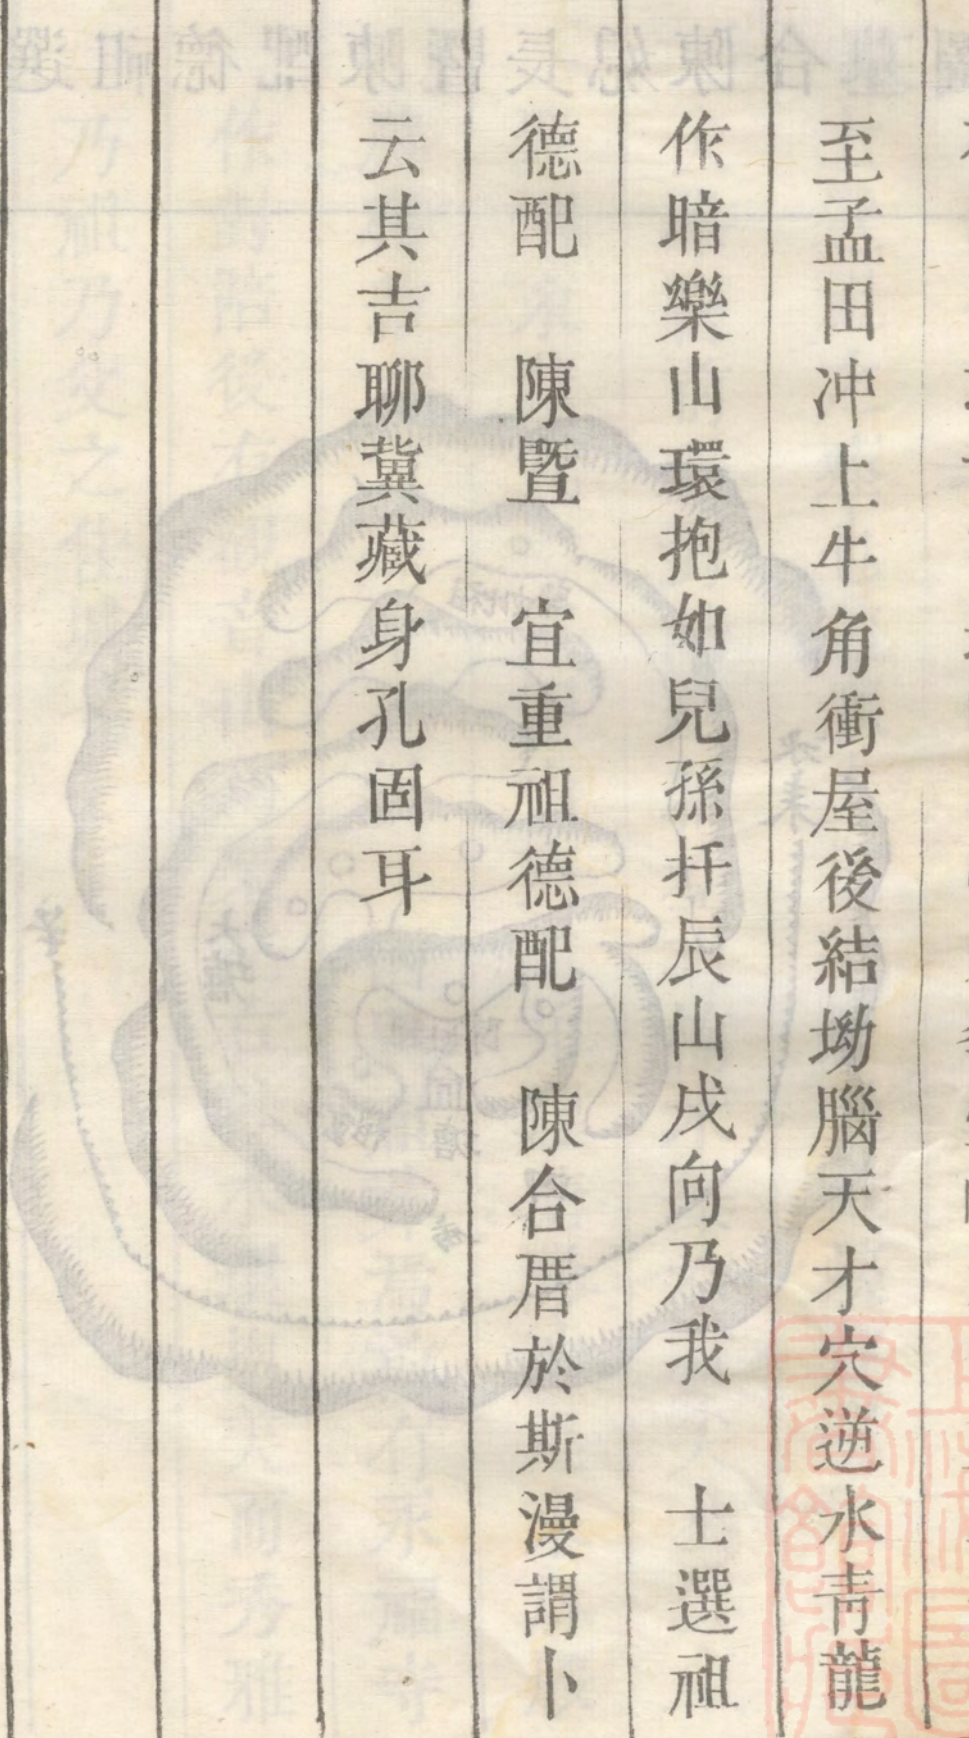 至孟田冲上牛角衝屋後結坳腦天才穴逆水青龍
作暗樂山環抱如兒孫扦辰山戌向乃我　士選祖
德配　陳暨　宜重祖德配　陳合厝於斯漫謂卜
云其吉聊冀藏身孔固耳